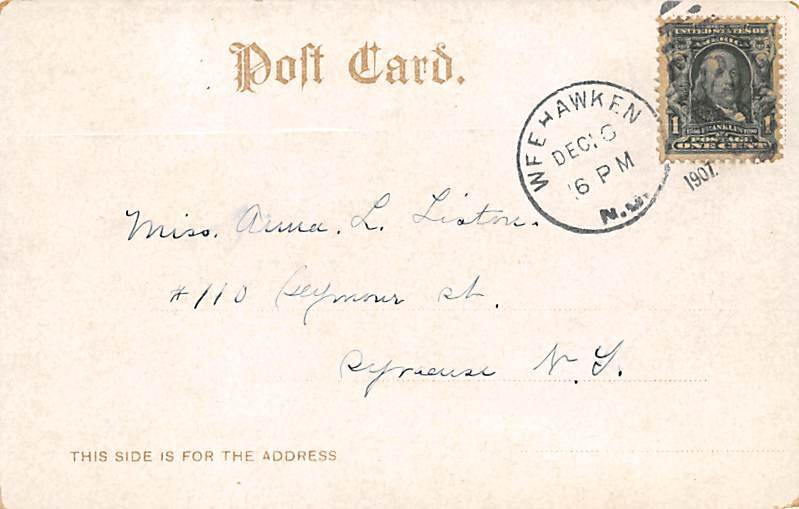 Post Card.
UNITED STATES OF
AMERICA
1 1706 FRANKLIN 1790 1
POSTAGE
ONE CENT
WEEHAWKEN
DEC
6 PM
N.J.
1907.
Miss. Anna. L. Liston.
#110 Seymour St.
Syracuse N.Y.
THIS SIDE IS FOR THE ADDRESS